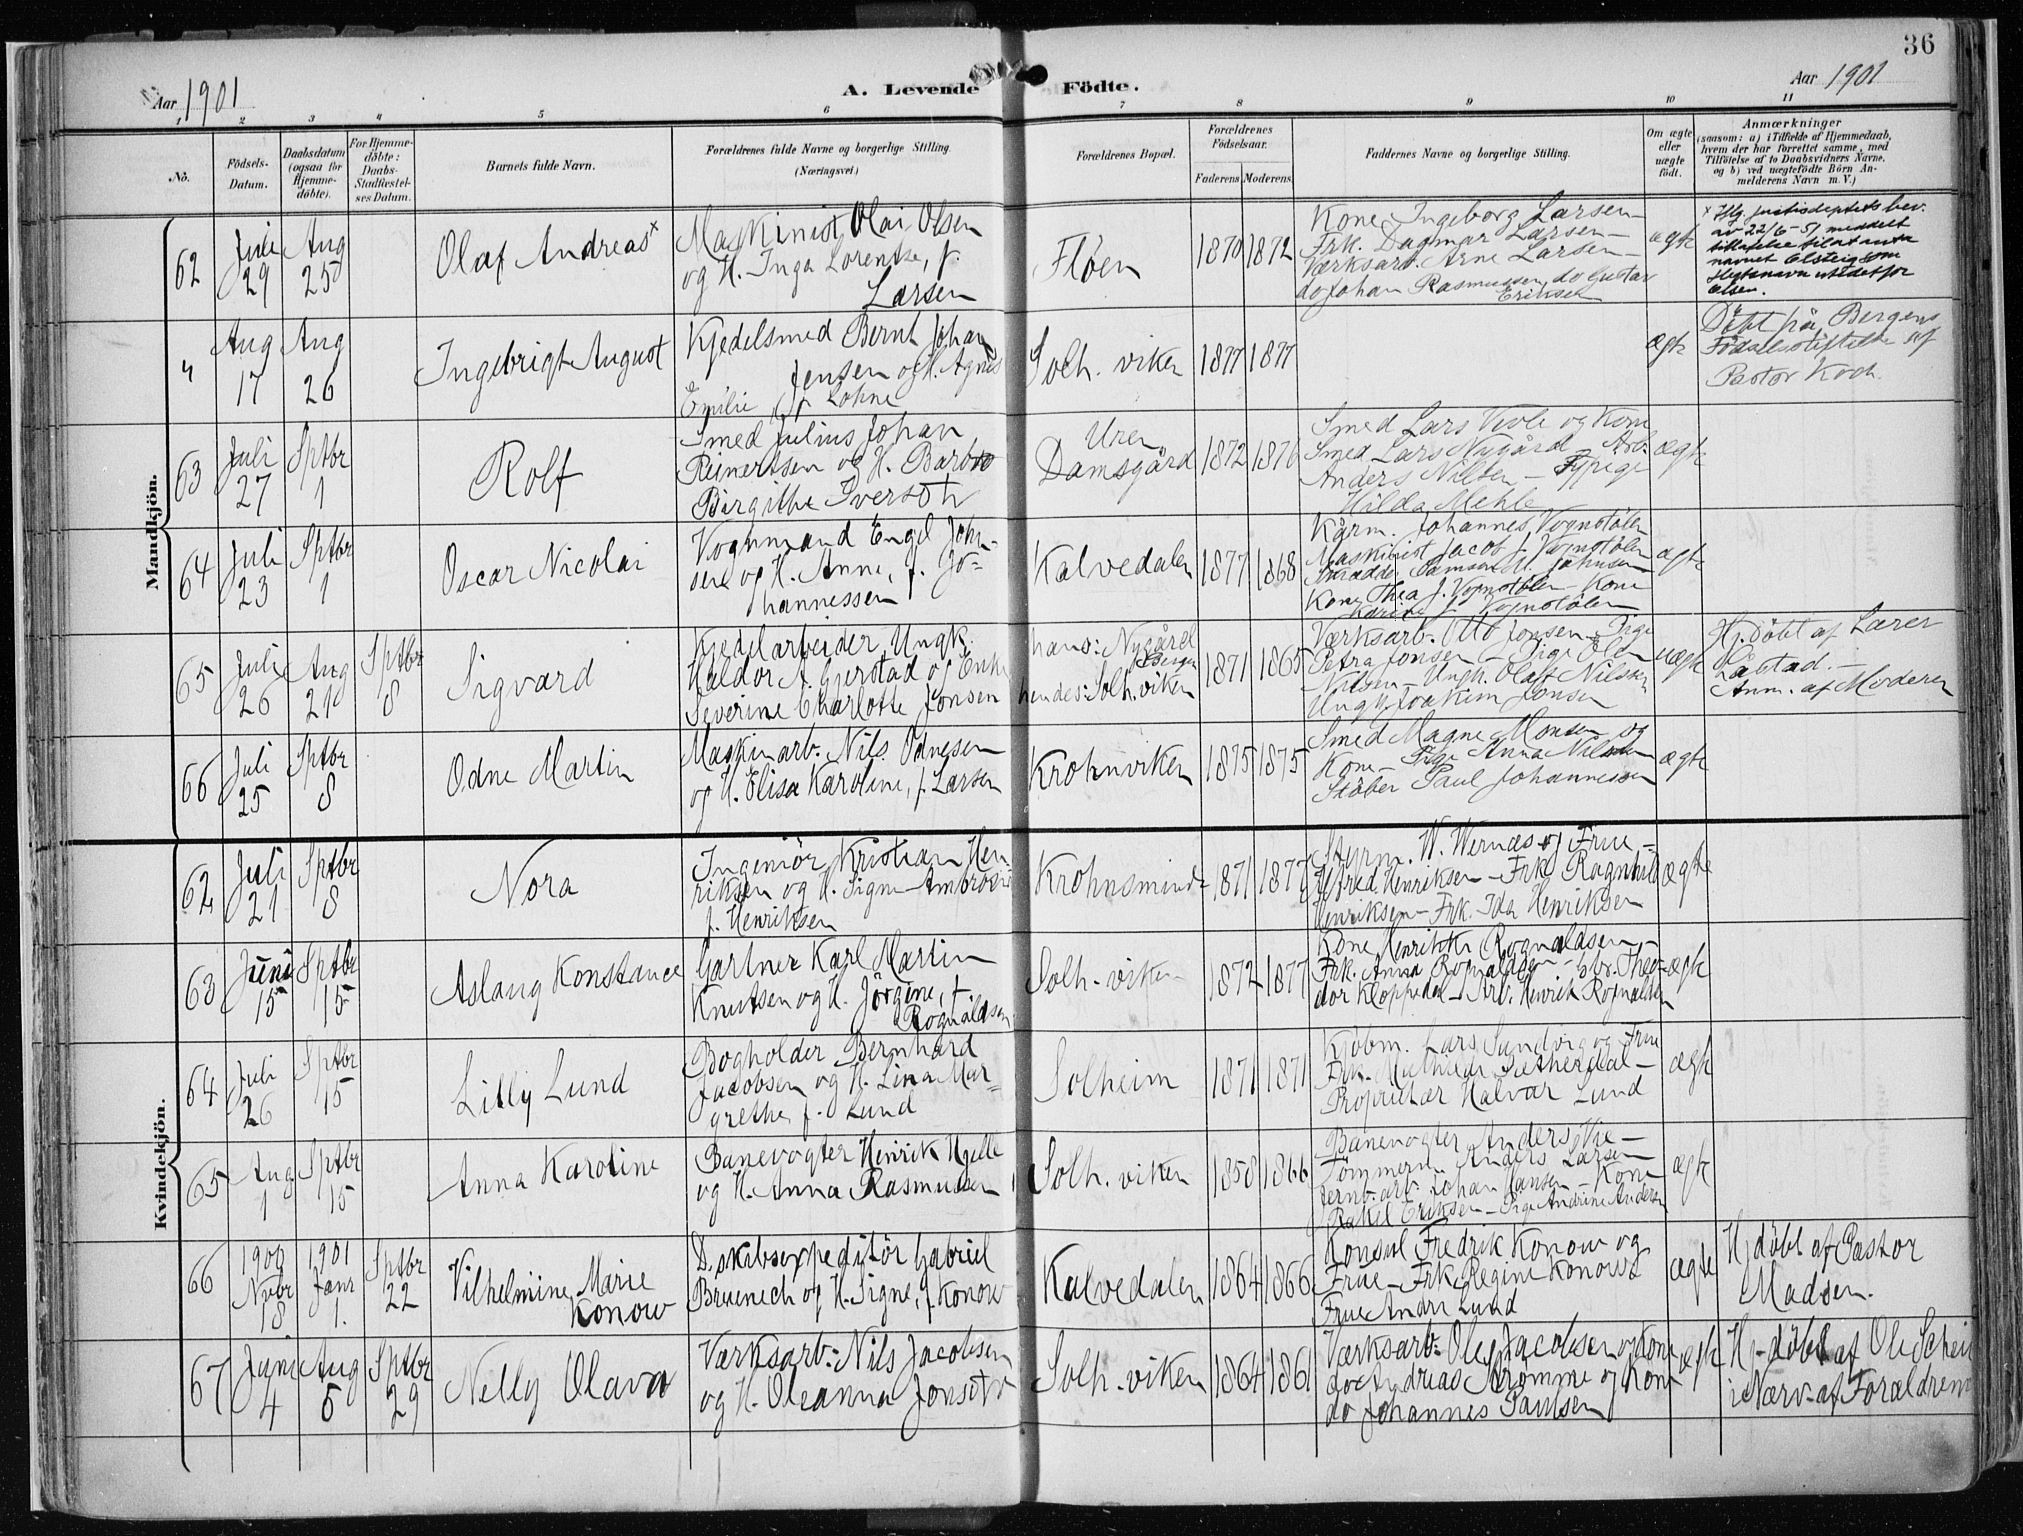 36
Aar 1901
A. Levende Födte.
Aar 1901
1 2 3 4 5 6 7 8 9 10 11
No.
Födsels-Datum.
Daabsdatum (ogsaa for Hjemme-döbte).
For Hjemme-döbte: Daabs-Stadfæstel-ses Datum.
Barnets fulde Navn.
Forældrenes fulde Navne og borgerlige Stilling.
(Næringsvei)
Forældrenes Bopæl.
Forældrenes Födselsaar.
Faderens Moderens
Faddernes Navne og borgerlige Stilling.
Om ægte eller uægte födt.
Anmærkninger
(saasom: a) i Tilfælde af Hjemmedaab,
hvem der har forrettet samme, med
Tilföielse af to Daabsvidners Navne,
og b) ved uægtefödte Börn An-
melderens Navn m. V.)
Mandkjön.
62 Juli 29 Aug 25
Olaf Andreas x
Maskinist Olai Olsen
og H. Inga Lorentse, f.
Larsen
Fløen
1870 1872
Kone Ingeborg Larsen–
Frk. Dagmar Larsen–
Værksarb. Arne Larsen–
do Johan Rasmussen, do Gustav
Eriksen
ægte
x Iflg. justisdeptets bev.
av 22/6-51 meddelt
tillatelse til at anta
navnet Elsteig som
slegtsnavn istedetfor
Olsen.
" Aug 17 Aug 26
Ingebrigt August
Kjedelsmed Bernt Johan
Jensen og H. Agnes
Emilie f. Lohne
Solh. viken
1877 1877
ægte
Døbt på Bergens
Fødselsstiftelse af
Pastor Koch.
63 Juli 27 Sptbr 1
Rolf
Smed Julius Johan
Reinertsen og H. Barbro
Birgithe Iversdtr
Uren
Damsgård
1872 1876
Smed Lars Vevle og Kone
Smed Lars Nygård – Arb.
Anders Nilsen – Typige
Hilda Mehle
ægte
64 Juli 23 Sptbr 1
Oscar Nicolai
Vognmand Engel John-
sen og H. Anne, f. Jo-
hannessen
Kalvedalen
1877 1868
Kårm. Johannes Vognstølen
Maskinist Jacob J. Vognstølen
Skrædder Samson M. Johnsen
Kone Thea J. Vognstølen – Kone
Karine J. Vognstølen
ægte
65 Juli 26 Aug 29 Sptbr 8
Sigvard
Kjedelarbeider, Ungk.
Haldor A. Gjerstad og Enke
Severine Charlotte Jonsen
hans: Nygård
Bergen
hendes: Solh. viken
1871 1865
Værksarb. Otto Jonsen – Pige
Petra Jonsen – Pige Olga
Nilsen – Ungk. Olaf Nilsen
Ungk. Joakim Jonsen
uægte
Hj. døbt af Lærer
Løstad. –
Anm. af Moderen
66 Juli 25 Sptbr 8
Odne Martin
Maskinarb. Nils Odnesen
og H. Elisa Karoline, f. Larsen
Krohnviken
1875 1875
Smed Magne Monsen og
Kone – Pige Anna Nilsen
Støber Paul Johannesen
ægte
Kvindekjön.
62 Juli 21 Sptbr 8
Nora
Ingeniør Kristian Hen-
riksen og H. Signe Ambrosia
f. Henriksen
Krohnsminde
1871 1877
Styrm. W. Wernæs og Frue –
Alfred Henriksen – Frk. Ragnhild
Henriksen – Frk. Ida Henriksen
ægte
63 Juni 15 Sptbr 15
Aslaug Konstance
Gartner Karl Martin
Knutsen og H. Jørgine, f.
Rognaldsen
Solh. viken
1872 1877
Kone Henrikke Rognaldsen –
Frk. Anna Rognaldsen – Theo-
dor Kloppedal – Arb. Henrik Rognaldsen
ægte
64 Juli 26 Sptbr 15
Lilly Lund
Bogholder Bernhard
Jacobsen og H. Lina Mar-
grethe f. Lund
Solheim
1871 1871
Kjøbm. Lars Sundvig og Frue
Frk. Mathilde Sætherdal –
Proprietær Halvar Lund
ægte
65 Aug 1 Sptbr 15
Anna Karoline
Banevogter Henrik Hjelle
og H. Anna Rasmussen
Solh. viken
1858 1866
Banevogter Anders Vie –
Tømmerm. Anders Larsen
Jernb.arb. Johan Hansen – Kone
Rakel Eriksen – Pige Andrine Anders.
ægte
66 1900 Nvbr 18 1901 Janr 1. Sptbr 22
Vilhelmine Marie
Konow
D.skibsexpeditør Gabriel
Bruenech og H. Signe, f. Konow
Kalvedalen
1864 1866
Konsul Fredrik Konow og
Frue – Frk. Regine Konow
Frue Andr. Lund
ægte
Hj. døbt af Pastor
Madsen.
67 Juni 4 Aug 5 Sptbr 29
Nelly Olava
Værksarb. Nils Jacobsen
og H. Oleanna Jonsdtr
Solh. viken
1864 1861
Værksarb. Ole Jacobsen og Kone
do Andreas Strømme og Kone
do Johannes Paulsen
ægte
Hj. døbt af Ole Schei
i Nærv. af Forældrene